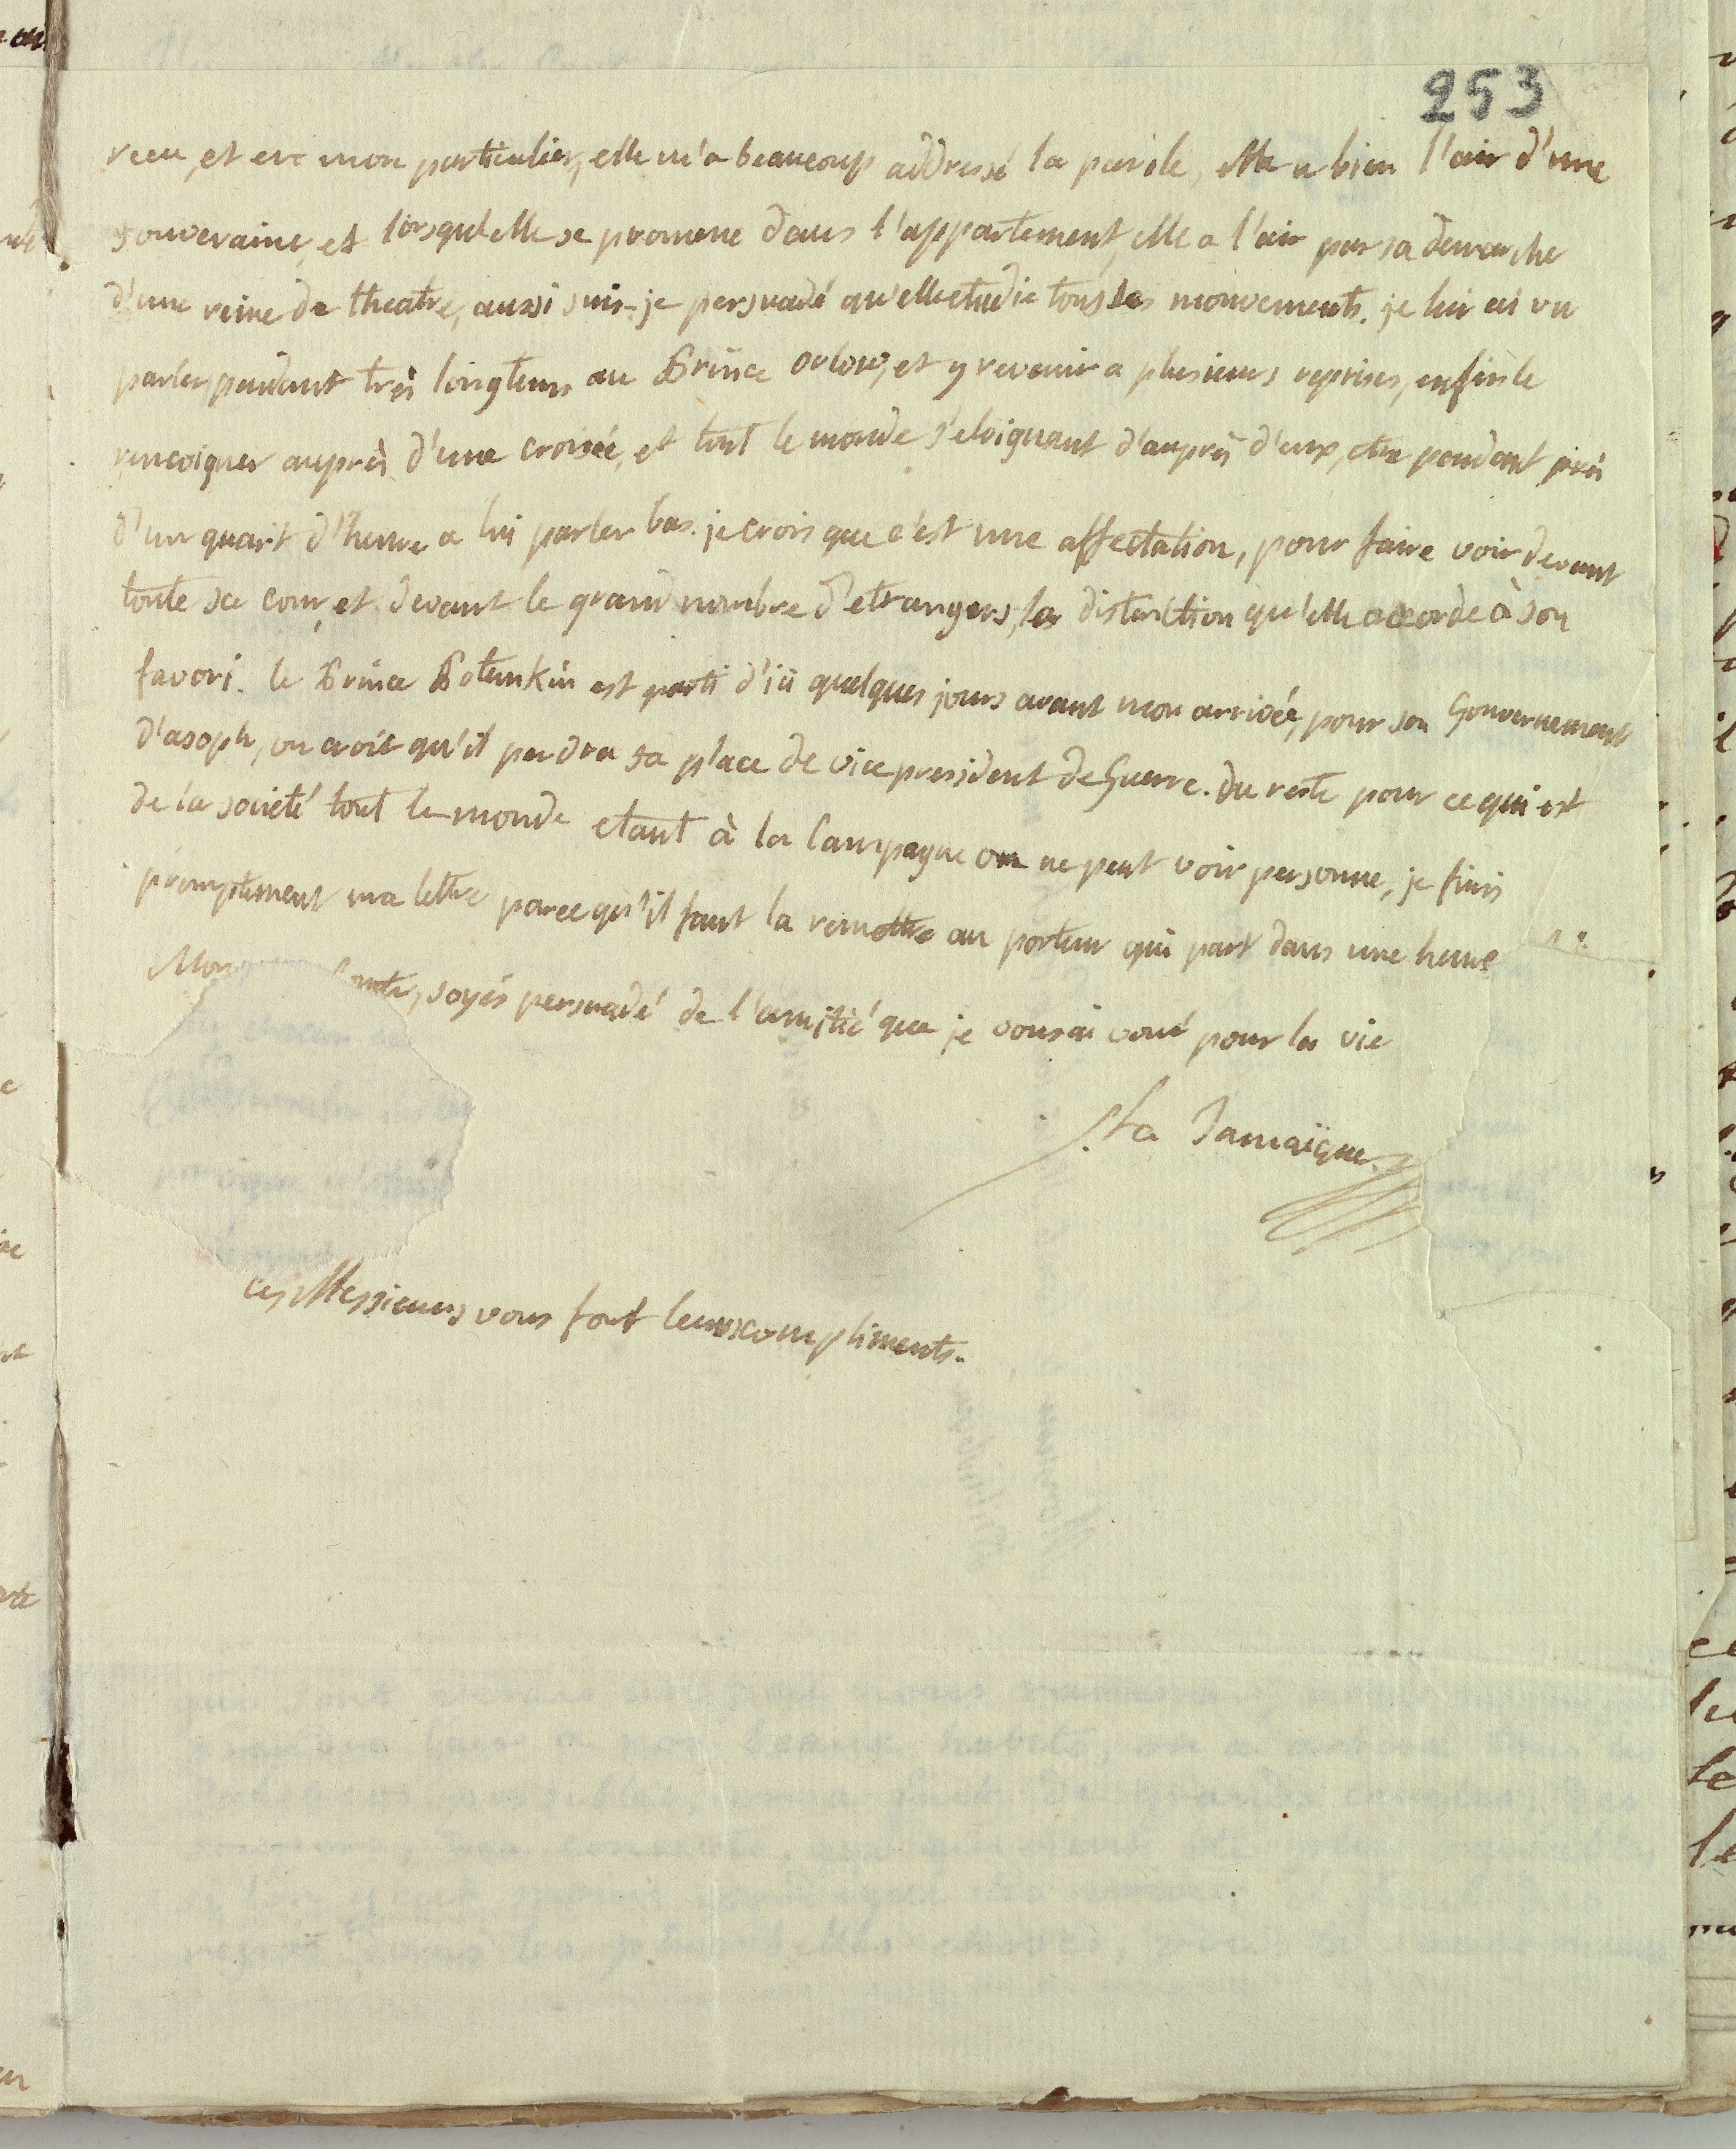 253
reçu, et en mon particulier, elle m'a beaucoup addressé la parole, elle a bien l'air d'une
souveraine, et lorsqu'elle se promene dans l'appartement, elle a l'air par sa demarche
d'une reine de theatre, aussi suis-je persuadé qu'elle etudie tous ses mouvements. je lui ai vu
parler pendant très longtems au Prince orlow, et y revenir a plusieurs reprises, enfin le
rencoigner auprès d'une croisée, et tout le monde s'eloignant d'auprès d'eux, etre pendant près
d'un quart d'heure a lui parler bas. je crois que c'est une affectation, pour faire voir devant
toute sa cour, et devant le grand nombre d'etrangers, la distinction qu'elle accorde à son
favori. le Prince Potemkin est parti d'ici quelques jours avant mon arrivée, pour son Gouvernement
d'asoph, on croit qu'il perdra sa place de vice president de Guerre. du reste pour ce qui est
de la societé tout le monde etant à la Campagne on ne peut voir personne, je finis
promptement ma lettre parce qu'il faut la remettre au porteur qui part dans une heure
Mon soyés persuadé de l'amitié que je vous ai voué pour la vie
La Jamaïque
ces Messieurs vous font leurs compliments.